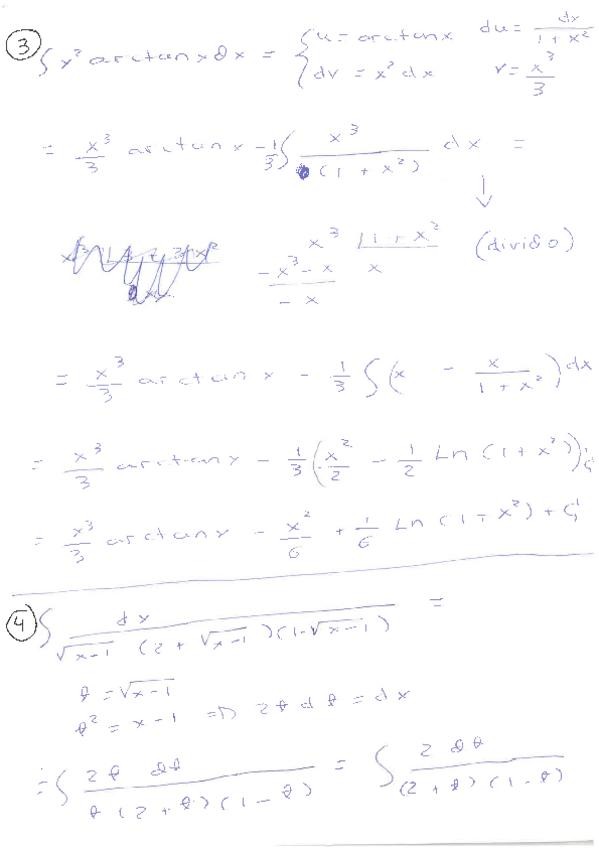 ③ ∫ x² arctan x dx = { u = arctan x   du = dx/(1 + x²)
{ dv = x² dx   v = x³/3
= x³/3 arctan x - 1/3 ∫ x³/(1 + x²) dx =
↓
x³ |1 + x² (divido)
-x³ - x   x
- x
= x³/3 arctan x - 1/3 ∫ (x - x/(1 + x²)) dx
= x³/3 arctan x - 1/3 (x²/2 - 1/2 Ln (1 + x²))
= x³/3 arctan x - x²/6 + 1/6 Ln (1 + x²) + C
④ ∫ dx/(√x-1 (2 + √x-1)(1-√x-1)) =
t = √x-1
t² = x - 1 => 2t dt = dx
= ∫ 2t dt/(t (2 + t)(1 - t)) = ∫ 2 dt/((2 + t)(1 - t))